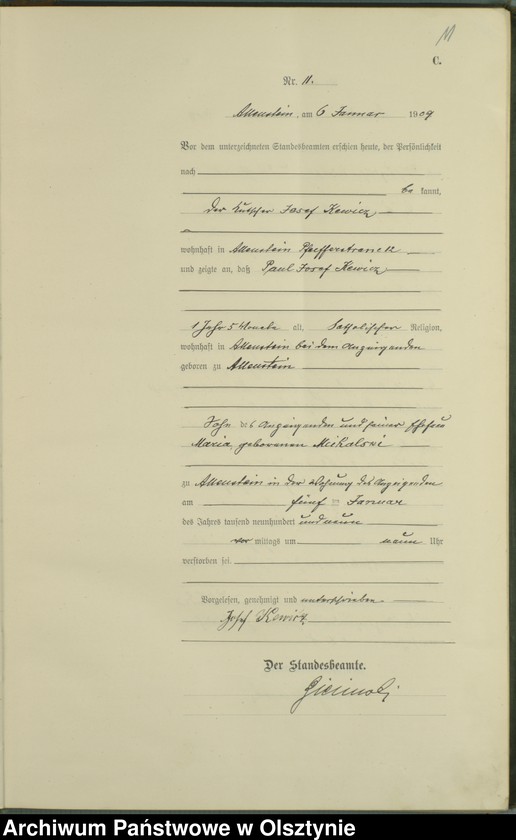 11
C.
Nr. 11.
Allenstein, am 6 Januar 1909
Vor dem unterzeichneten Standesbeamten erschien heute, der Persönlichkeit
nach
be kannt,
der Kutscher Josef Kewicz
wohnhaft in Allenstein Pfeifferstrasse 12
und zeigte an, daß Paul Josef Kewicz
1 Jahr 5 Monate alt, katholischer Religion,
wohnhaft in Allenstein bei dem Anzeigenden
geboren zu Allenstein
Sohn des Anzeigenden und seiner Ehefrau
Maria, geborenen Michalski
zu Allenstein in der Wohnung des Anzeigenden
am fünf ten Januar
des Jahres tausend neunhundert und neun
vor mittags um neun Uhr
verstorben sei.
Vorgelesen, genehmigt und unterschrieben
Josef Kewicz
Der Standesbeamte.
Archiwum Państwowe w Olsztynie